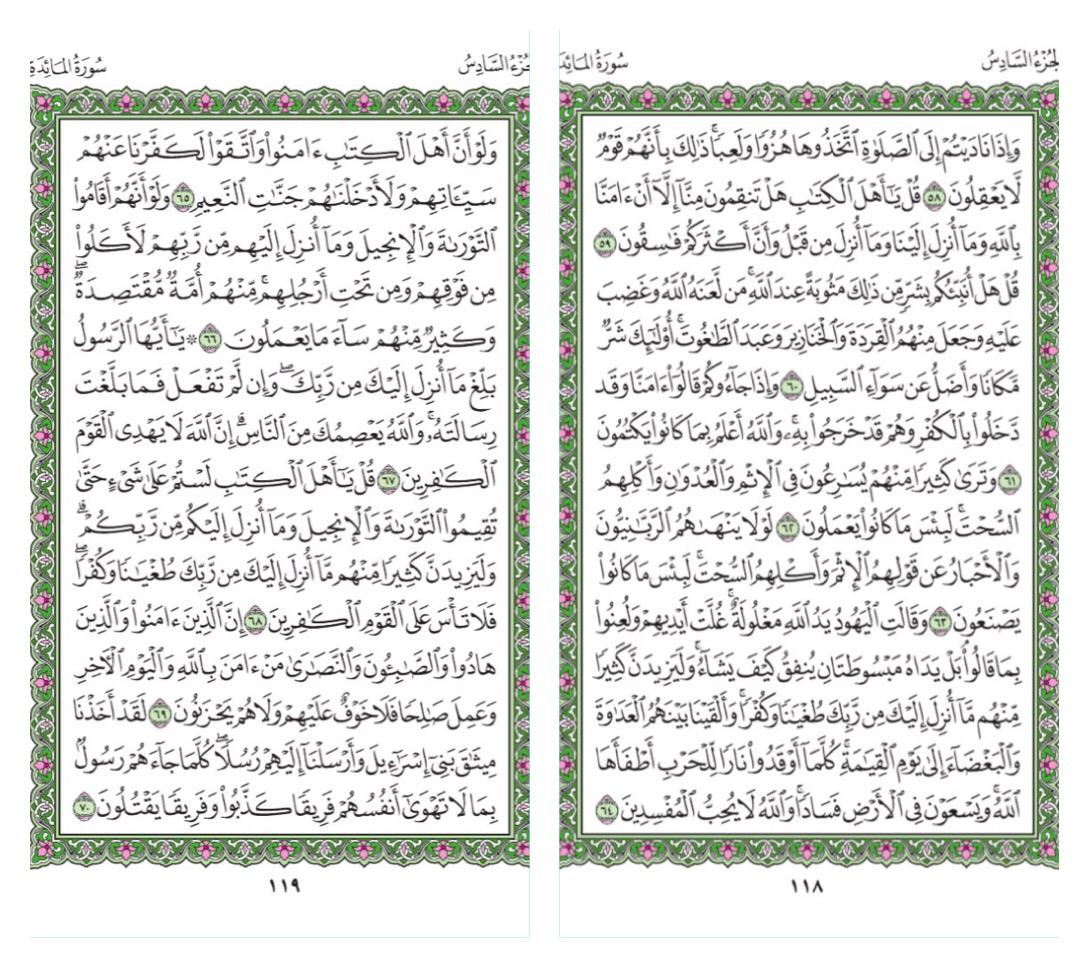 الجُزْءُ السَّادِسُ
سُورَةُ المَائِدَةِ
وَإِذَا نَادَيْتُمْ إِلَى ٱلصَّلَوٰةِ ٱتَّخَذُوهَا هُزُوًا وَلَعِبًا ۚ ذَٰلِكَ بِأَنَّهُمْ قَوْمٌ
لَّا يَعْقِلُونَ ٥٨ قُلْ يَـٰٓأَهْلَ ٱلْكِتَـٰبِ هَلْ تَنقِمُونَ مِنَّآ إِلَّآ أَنْ ءَامَنَّا
بِٱللَّهِ وَمَآ أُنزِلَ إِلَيْنَا وَمَآ أُنزِلَ مِن قَبْلُ وَأَنَّ أَكْثَرَكُمْ فَـٰسِقُونَ ٥٩
قُلْ هَلْ أُنَبِّئُكُم بِشَرٍّ مِّن ذَٰلِكَ مَثُوبَةً عِندَ ٱللَّهِ ۚ مَن لَّعَنَهُ ٱللَّهُ وَغَضِبَ
عَلَيْهِ وَجَعَلَ مِنْهُمُ ٱلْقِرَدَةَ وَٱلْخَنَازِيرَ وَعَبَدَ ٱلطَّـٰغُوتَ ۚ أُو۟لَـٰٓئِكَ شَرٌّ
مَّكَانًا وَأَضَلُّ عَن سَوَآءِ ٱلسَّبِيلِ ٦٠ وَإِذَا جَآءُوكُمْ قَالُوٓا۟ ءَامَنَّا وَقَد
دَّخَلُوا۟ بِٱلْكُفْرِ وَهُمْ قَدْ خَرَجُوا۟ بِهِۦ ۚ وَٱللَّهُ أَعْلَمُ بِمَا كَانُوا۟ يَكْتُمُونَ
٦١ وَتَرَىٰ كَثِيرًا مِّنْهُمْ يُسَـٰرِعُونَ فِى ٱلْإِثْمِ وَٱلْعُدْوَٰنِ وَأَكْلِهِمُ
ٱلسُّحْتَ ۚ لَبِئْسَ مَا كَانُوا۟ يَعْمَلُونَ ٦٢ لَوْلَا يَنْهَىٰهُمُ ٱلرَّبَّـٰنِيُّونَ
وَٱلْأَحْبَارُ عَن قَوْلِهِمُ ٱلْإِثْمَ وَأَكْلِهِمُ ٱلسُّحْتَ ۚ لَبِئْسَ مَا كَانُوا۟
يَصْنَعُونَ ٦٣ وَقَالَتِ ٱلْيَهُودُ يَدُ ٱللَّهِ مَغْلُولَةٌ ۚ غُلَّتْ أَيْدِيهِمْ وَلُعِنُوا۟
بِمَا قَالُوا۟ ۘ بَلْ يَدَاهُ مَبْسُوطَتَانِ يُنفِقُ كَيْفَ يَشَآءُ ۚ وَلَيَزِيدَنَّ كَثِيرًا
مِّنْهُم مَّآ أُنزِلَ إِلَيْكَ مِن رَّبِّكَ طُغْيَـٰنًا وَكُفْرًا ۚ وَأَلْقَيْنَا بَيْنَهُمُ ٱلْعَدَٰوَةَ
وَٱلْبَغْضَآءَ إِلَىٰ يَوْمِ ٱلْقِيَـٰمَةِ ۚ كُلَّمَآ أَوْقَدُوا۟ نَارًا لِّلْحَرْبِ أَطْفَأَهَا
ٱللَّهُ ۚ وَيَسْعَوْنَ فِى ٱلْأَرْضِ فَسَادًا ۚ وَٱللَّهُ لَا يُحِبُّ ٱلْمُفْسِدِينَ ٦٤
١١٨
الجُزْءُ السَّادِسُ
سُورَةُ المَائِدَةِ
وَلَوْ أَنَّ أَهْلَ ٱلْكِتَـٰبِ ءَامَنُوا۟ وَٱتَّقَوْا۟ لَكَفَّرْنَا عَنْهُمْ
سَيِّـَٔاتِهِمْ وَلَأَدْخَلْنَـٰهُمْ جَنَّـٰتِ ٱلنَّعِيمِ ٦٥ وَلَوْ أَنَّهُمْ أَقَامُوا۟
ٱلتَّوْرَىٰةَ وَٱلْإِنجِيلَ وَمَآ أُنزِلَ إِلَيْهِم مِّن رَّبِّهِمْ لَأَكَلُوا۟
مِن فَوْقِهِمْ وَمِن تَحْتِ أَرْجُلِهِم ۚ مِّنْهُمْ أُمَّةٌ مُّقْتَصِدَةٌ ۖ
وَكَثِيرٌ مِّنْهُمْ سَآءَ مَا يَعْمَلُونَ ٦٦ ۞ يَـٰٓأَيُّهَا ٱلرَّسُولُ
بَلِّغْ مَآ أُنزِلَ إِلَيْكَ مِن رَّبِّكَ ۖ وَإِن لَّمْ تَفْعَلْ فَمَا بَلَّغْتَ
رِسَالَتَهُۥ ۚ وَٱللَّهُ يَعْصِمُكَ مِنَ ٱلنَّاسِ ۗ إِنَّ ٱللَّهَ لَا يَهْدِى ٱلْقَوْمَ
ٱلْكَـٰفِرِينَ ٦٧ قُلْ يَـٰٓأَهْلَ ٱلْكِتَـٰبِ لَسْتُمْ عَلَىٰ شَىْءٍ حَتَّىٰ
تُقِيمُوا۟ ٱلتَّوْرَىٰةَ وَٱلْإِنجِيلَ وَمَآ أُنزِلَ إِلَيْكُم مِّن رَّبِّكُمْ ۗ
وَلَيَزِيدَنَّ كَثِيرًا مِّنْهُم مَّآ أُنزِلَ إِلَيْكَ مِن رَّبِّكَ طُغْيَـٰنًا وَكُفْرًا ۖ
فَلَا تَأْسَ عَلَى ٱلْقَوْمِ ٱلْكَـٰفِرِينَ ٦٨ إِنَّ ٱلَّذِينَ ءَامَنُوا۟ وَٱلَّذِينَ
هَادُوا۟ وَٱلصَّـٰبِـُٔونَ وَٱلنَّصَـٰرَىٰ مَنْ ءَامَنَ بِٱللَّهِ وَٱلْيَوْمِ ٱلْـَٔاخِرِ
وَعَمِلَ صَـٰلِحًا فَلَا خَوْفٌ عَلَيْهِمْ وَلَا هُمْ يَحْزَنُونَ ٦٩ لَقَدْ أَخَذْنَا
مِيثَـٰقَ بَنِىٓ إِسْرَٰٓءِيلَ وَأَرْسَلْنَآ إِلَيْهِمْ رُسُلًا ۖ كُلَّمَا جَآءَهُمْ رَسُولٌۢ
بِمَا لَا تَهْوَىٰٓ أَنفُسُهُمْ فَرِيقًا كَذَّبُوا۟ وَفَرِيقًا يَقْتُلُونَ ٧٠
١١٩